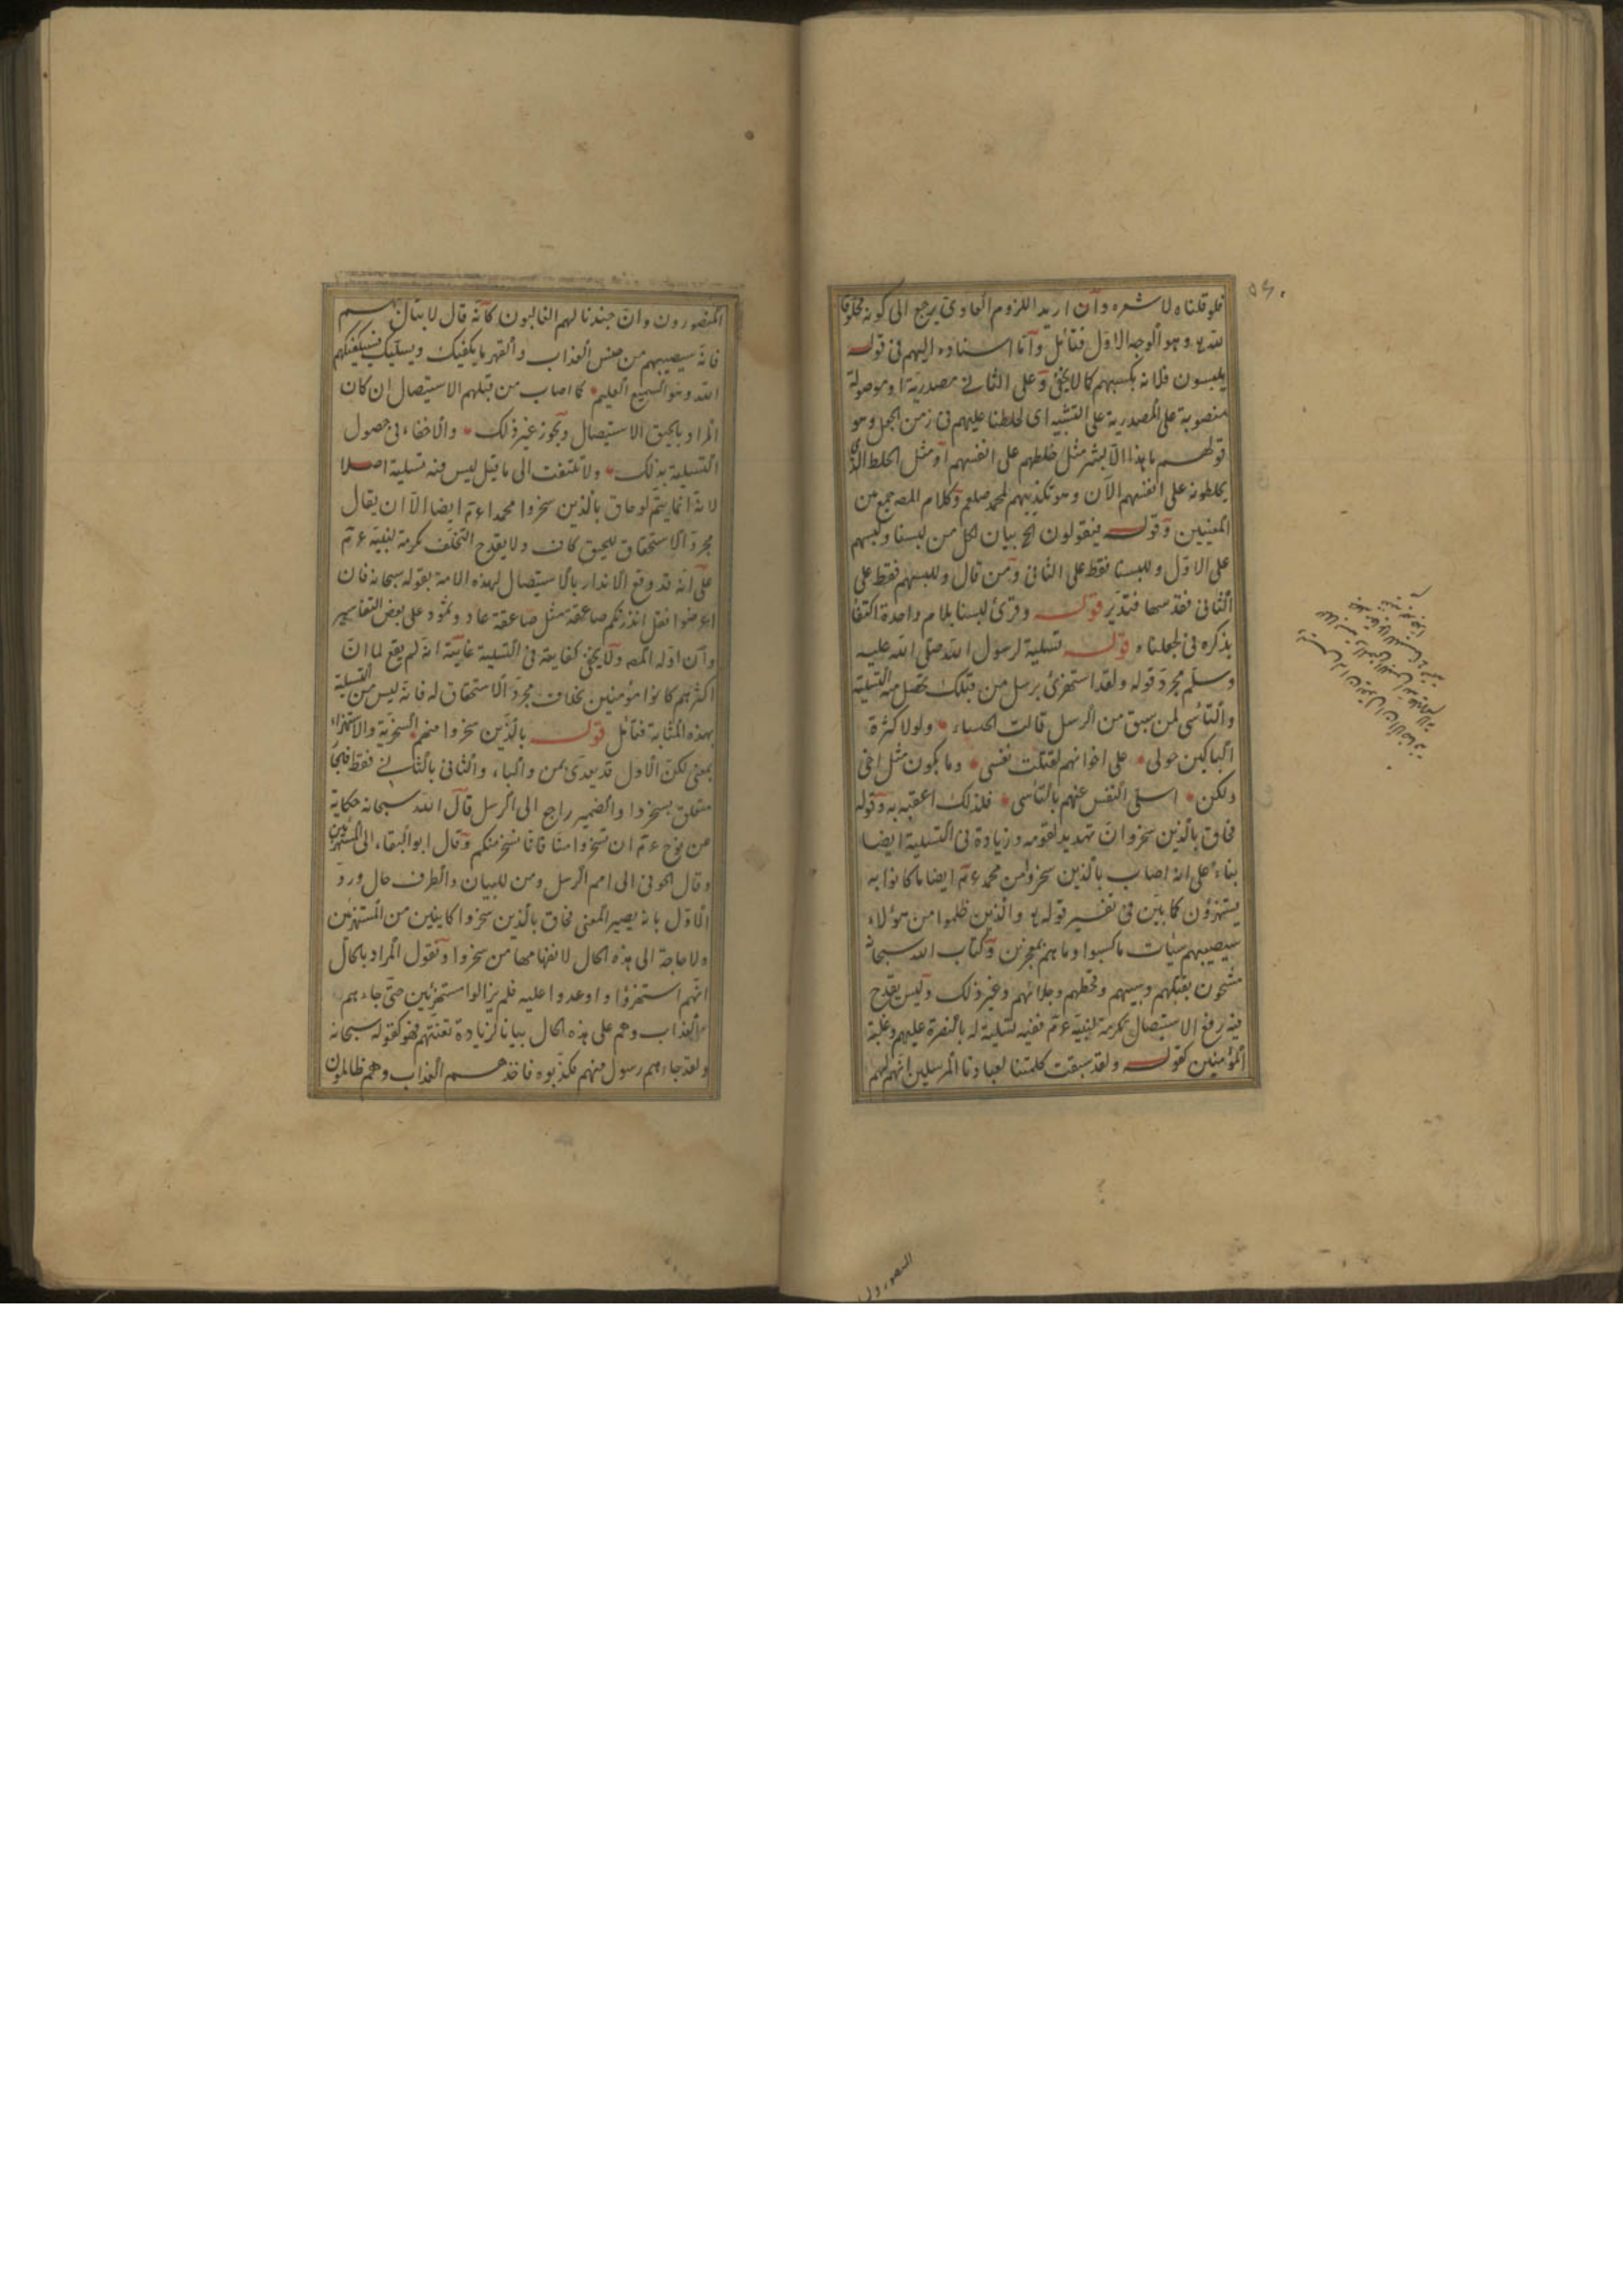 فلو قلناه لاشره وان اريد اللزوم العادى يرجع الى كونه مخلوقا
لله تع وهو الوجه الاول فتأمل واما اسناده اليهم فى قوله
يلبسون فلانه بكسبهم كما لا يخفى وعلى الثانى مصدرية او موصولة
منصوبة على المصدرية على التشبيه اى لخلطنا عليهم فى زمن الجعل وهو
قولهم ما هذا الا بشر مثل خلطهم على انفسهم او مثل الخلط الذى
يخلطونه على انفسهم الآن وهو تكذيبهم لمحمد صلعم وكلام المصـ جمع من
المعنيين وقوله فيقولون الخ بيان لكل من لبسنا ولبسهم
على الاول وللبسنا فقط على الثانى ومن قال وللبسهم فقط على
الثانى فقد سها فتدبر قوله وقرئ لبسنا بلام واحدة اكتفا
بذكره فى لجعلناه قوله تسلية لرسول الله صلى الله عليه
وسلم مجرد قوله ولقد استهزئ برسل من قبلك تحصل منه التسلية
والتأسى لمن سبق من الرسل قالت الخنساء ولولا كثرة
الباكين حولى على اخوانهم لقتلت نفسى وما يكون مثل اخى
ولكن اسلى النفس عنهم بالتأسى فلذلك اعقبه به وقوله
فحاق بالذين سخروا ان تهديد لقومه وزيادة فى التسلية ايضا
بناء على انه اصاب بالذين سخروا من محمد عم ايضا ما كانوا به
يستهزؤن كما بين فى تفسير قوله تع والذين ظلموا من هؤلاء
سيصيبهم سيئات ما كسبوا وما هم بمعجزين وكتاب الله سبحانه
مشحون بقتلهم وسبيهم وقحطهم وجلائهم وغير ذلك وليس يقدح
فيه رفع الاستيصال تكرمة لنبيه عم ففيه تسلية له بالنصرة عليهم وغلبة
المؤمنين كقوله ولقد سبقت كلمتنا لعبادنا المرسلين انهم لهم
المنصورون
المنصورون وان جندنا لهم الغالبون كأنه قال لا تبال بهم
فانه سيصيبهم من جنس العذاب والقهر ما يكفيك ويسليك فسيكفيكهم
الله وهو السميع العليم كما اصاب من قبلهم الاستيصال ان كان
المراد بالحيق الاستيصال ويجوز غير ذلك ولا خفاء فى حصول
التسلية بذلك ولا تلتفت الى ما قيل ليس فيه تسلية اصلا
لانه انما يتم لو حاق بالذين سخروا محمدا عم ايضا الا ان يقال
مجرد الاستحقاق للحيق كاف ولا يقدح التخلف تكرمة لنبيه عم
على انه قد وقع الانذار بالاستيصال لهذه الامة بقوله سبحانه فان
اعرضوا فقل انذرتكم صاعقة مثل صاعقة عاد وثمود على بعض التفاسير
وان اوله المصـ ولا يخفى كفايته فى التسلية غايته انه لم يقع لما ان
اكثرهم كانوا مؤمنين بخلاف مجرد الاستحقاق له فانه ليس من التسلية
بهذه المثابة فتأمل قوله بالذين سخروا منهم السخرية والاستهزاء
بمعنى لكن الاول قد يعدى بمن والباء والثانى بالثانى فقط
متعلق بسخروا والضمير راجع الى الرسل قال الله سبحانه حكاية
عن نوح عم ان تسخروا منا فانا نسخر منكم وقال ابو البقاء الى المستهزئين
وقال الحوفى الى امم الرسل ومن للبيان والظرف حال ورد
الاول بانه يصير المعنى فحاق بالذين سخروا كاينين من المستهزئين
ولا حاجة الى هذه الحال لانفهامها من سخروا ونقول المراد بالحال
انهم استهزؤا واوعدوا عليه فلم يزالوا مستهزئين حتى جاءهم
العذاب وهم على هذه الحال بيانا لزيادة تعنتهم فهو كقوله سبحانه
ولقد جاءهم رسول منهم فكذبوه فاخذهم العذاب وهم ظالمون